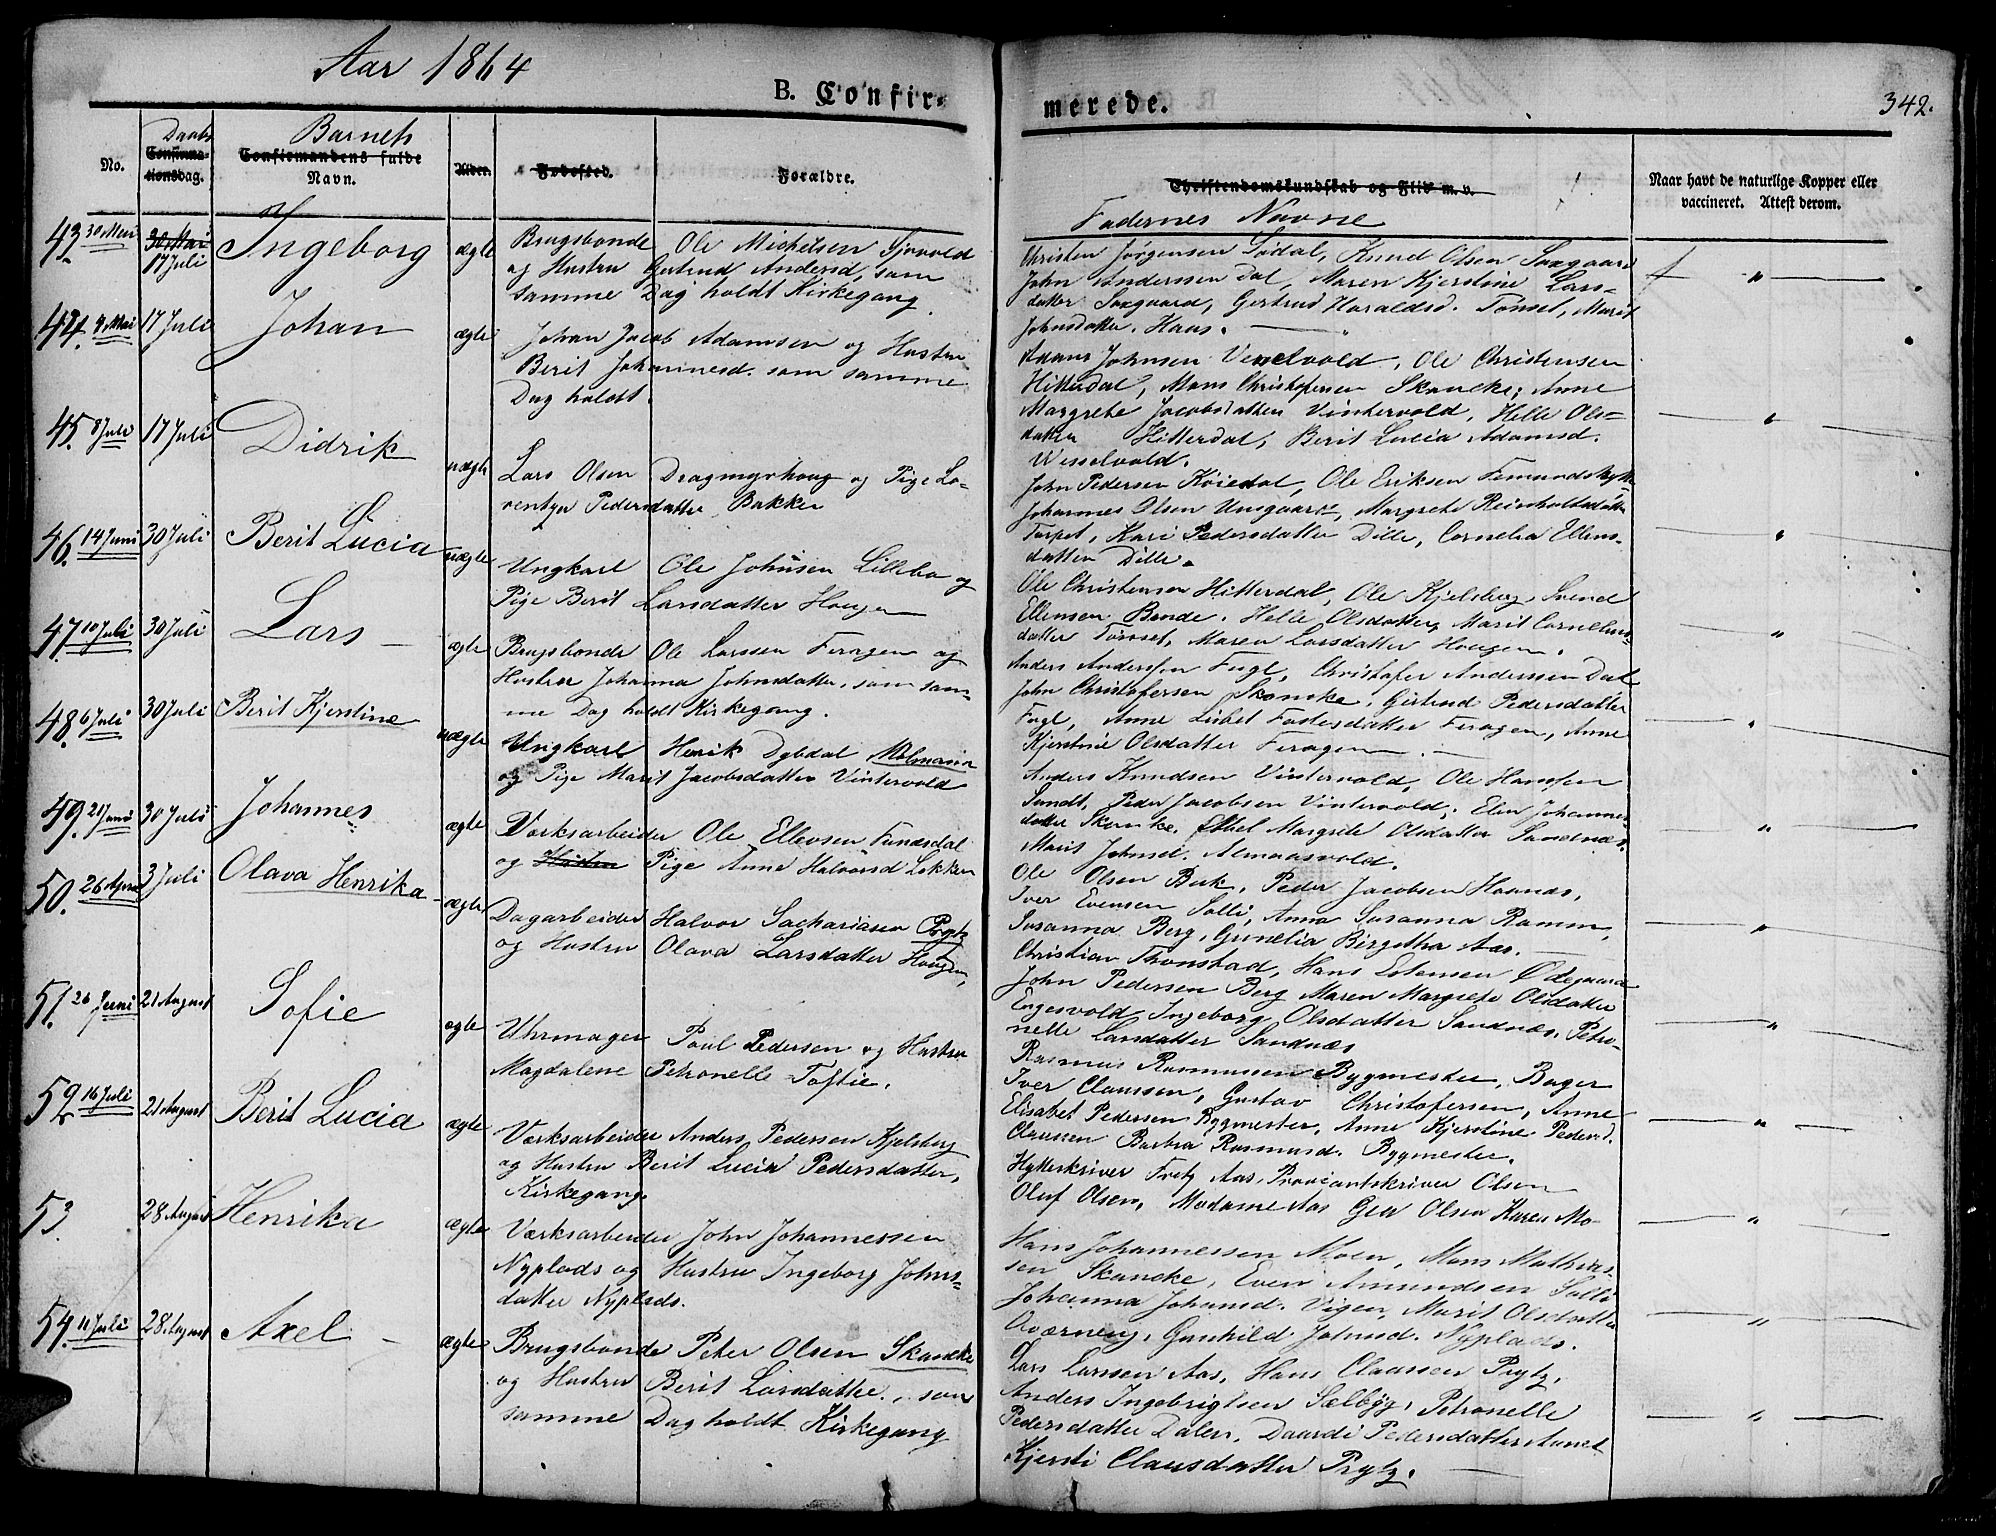 Aar 1864
B. Confir-
merede.
342.
No.
Daabs
Confirma-
tionsdag.
Barnets
Confirmandens fulde
Navn.
Alder.
Fødested.
Forældre.
Christendomskundskab og Flid m. v.
Fadernes Navne
Naar havt de naturlige Kopper eller
vaccineret. Attest derom.
43. 30 Mai 30 Mai
17 Juli
Ingeborg
ægte
Brugsbonde Ole Michelsen Sjøvold
og Hustru Gertrud Andersd, som
samme Dag holdt Kirkegang.
Christen Jørgensen Sødal, Knud Olsen Saxgaard
John Anderssen Dal, Maren Kjerstine Lars-
datter Saxgaard, Gertrud Haraldsd. Tønset, Marit
Johnsdatter. Haas.
44. 9 Mai 17 Juli
Johan
ægte
Johan Jacob Adamsen og Hustru
Berit Johannesd. som samme
Dag holdt.
Johnsen Vesselvold, Ole Christensen
Hitterdal, Mons Christofersen Skancke; Anne
Margrete Jacobsdatter Vintervold, Helle Ols-
datter Hitterdal, Berit Lucia Adamsd.
Wesselvold.
45. 8 Juli 17 Juli
Didrik
uægte
Lars Olsen Dragmyrhoug og Pige Lo-
rentze Pedersdatter Bakken
John Pedersen Køiedal, Ole Eriksen Femundshytte
Johannes Olsen Unsgaard, Margrete Reinholtsdatter
Torpet, Kari Pedersdatter Dille, Cornelia Ellens-
datter Dille.
46. 14 Juni 30 Juli
Berit Lucia
uægte
Ungkarl Ole Johnsen Lillebo og
Pige Berit Larsdatter Hougen
Ole Christensen Hitterdal, Ole Kjelsberg, Svend
Ellensen Bonde. Helle Olsdatter, Marit Cornelius-
datter Tørnset, Maren Larsdatter Hougen.
47. 10 Juli 30 Juli
Lars
ægte
Brugsbonde Ole Larssen Feragen og
Hustru Johanna Johnsdatter, som sam-
me Dag holdt Kirkegang.
Anders Anderssen Fugl, Christofer Anderssen Dal
John Christofersen Skancke, Gertrud Pedersdatter
Fugl, Anne Lisbet Fastesdatter Feragen, Anne
Kjerstine Olsdatter Feragen
48. 6 Juli 30 Juli
Berit Kjerstine
uægte
Ungkarl Henrik Dybdal Molmann
og Pige Marit Jacobsdatter Vintervold
Anders Knudsen Vintervold, Ole Hanssen
Sundt, Peder Jacobsen Vintervold; Elen Johannes-
datter Skancke. Ethel Margrete Olsdatter Sandnæs.
Marit Johnsd. Almaasvold.
49. 21 Juni 30 Juli
Johannes
ægte
Værksarbeider Ole Ellevsen Funæsdal
og Hustru Pige Anne Halvorsd Løkken
Ole Olsen Birk, Peder Jacobsen Haanæs,
Iver Evensen Solli, Anna Susanna Ramm,
Susanna Berg, Gunelia Birgitha Aas.
50. 26 April 3 Juli
Olava Henrika
ægte
Dagarbeider Halvor Sachariasen Prytz
og Hustru Olava Larsdatter Hougen,
Christian Thonstad, Hans Estensen Ødegaard
John Pedersen Berg Maren Margrete Olsdatter
Engesvold, Ingeborg Olsdatter Sandnæs, Petro-
nelle Larsdatter Sandnæs
51. 26 Juni 21 August
Sofie
ægte
Uhrmager Poul Pedersen og Hustru
Magdalene Petronelle Toftie.
Rasmus Rasmussen Bygmester, Bager
Iver Claussen, Gustav Christofersen, Anne
Elisabet Pedersen Bygmester, Anne Kjerstine Pedersd.
Claussen Barbra Rasmusd. Bygmester.
52 16 Juli 21 August
Berit Lucia
ægte
Værksarbeider Anders Pedersen Kjelsberg
og Hustru Berit Lucia Pedersdatter,
Kirkegang.
Hytteskriver Fretz Aas, Proviantskriver Olsen
Oluf Olsen, Madame Aas Gea Olsen Karen Mo-
53 28 August
Henrika
ægte
Værksarbeider John Johannessen
Nyplads og Hustru Ingeborg Johns-
datter Nyplads.
Hans Johannessen Moen, Mons Mathias-
sen Skancke, Even Amundsen Solli
Johanna Johansd. Vigen, Marit Olsdatter
Qværneng, Gunhild Johnsd. Nyplads.
54. 11 Juli 28 August
Axel
ægte
Brugsbonde Peter Olsen Skancke
og Hustru Berit Larsdatter, som
samme Dag holdt Kirkegang
Lars Larssen Aas, Hans Claussen Prytz,
Anders Ingebrigtsen Sælbyg, Petronelle
Pedersdatter Dalen, Daardi Pedersdatter Aunet
Kjersti Clausdatter Prytz.